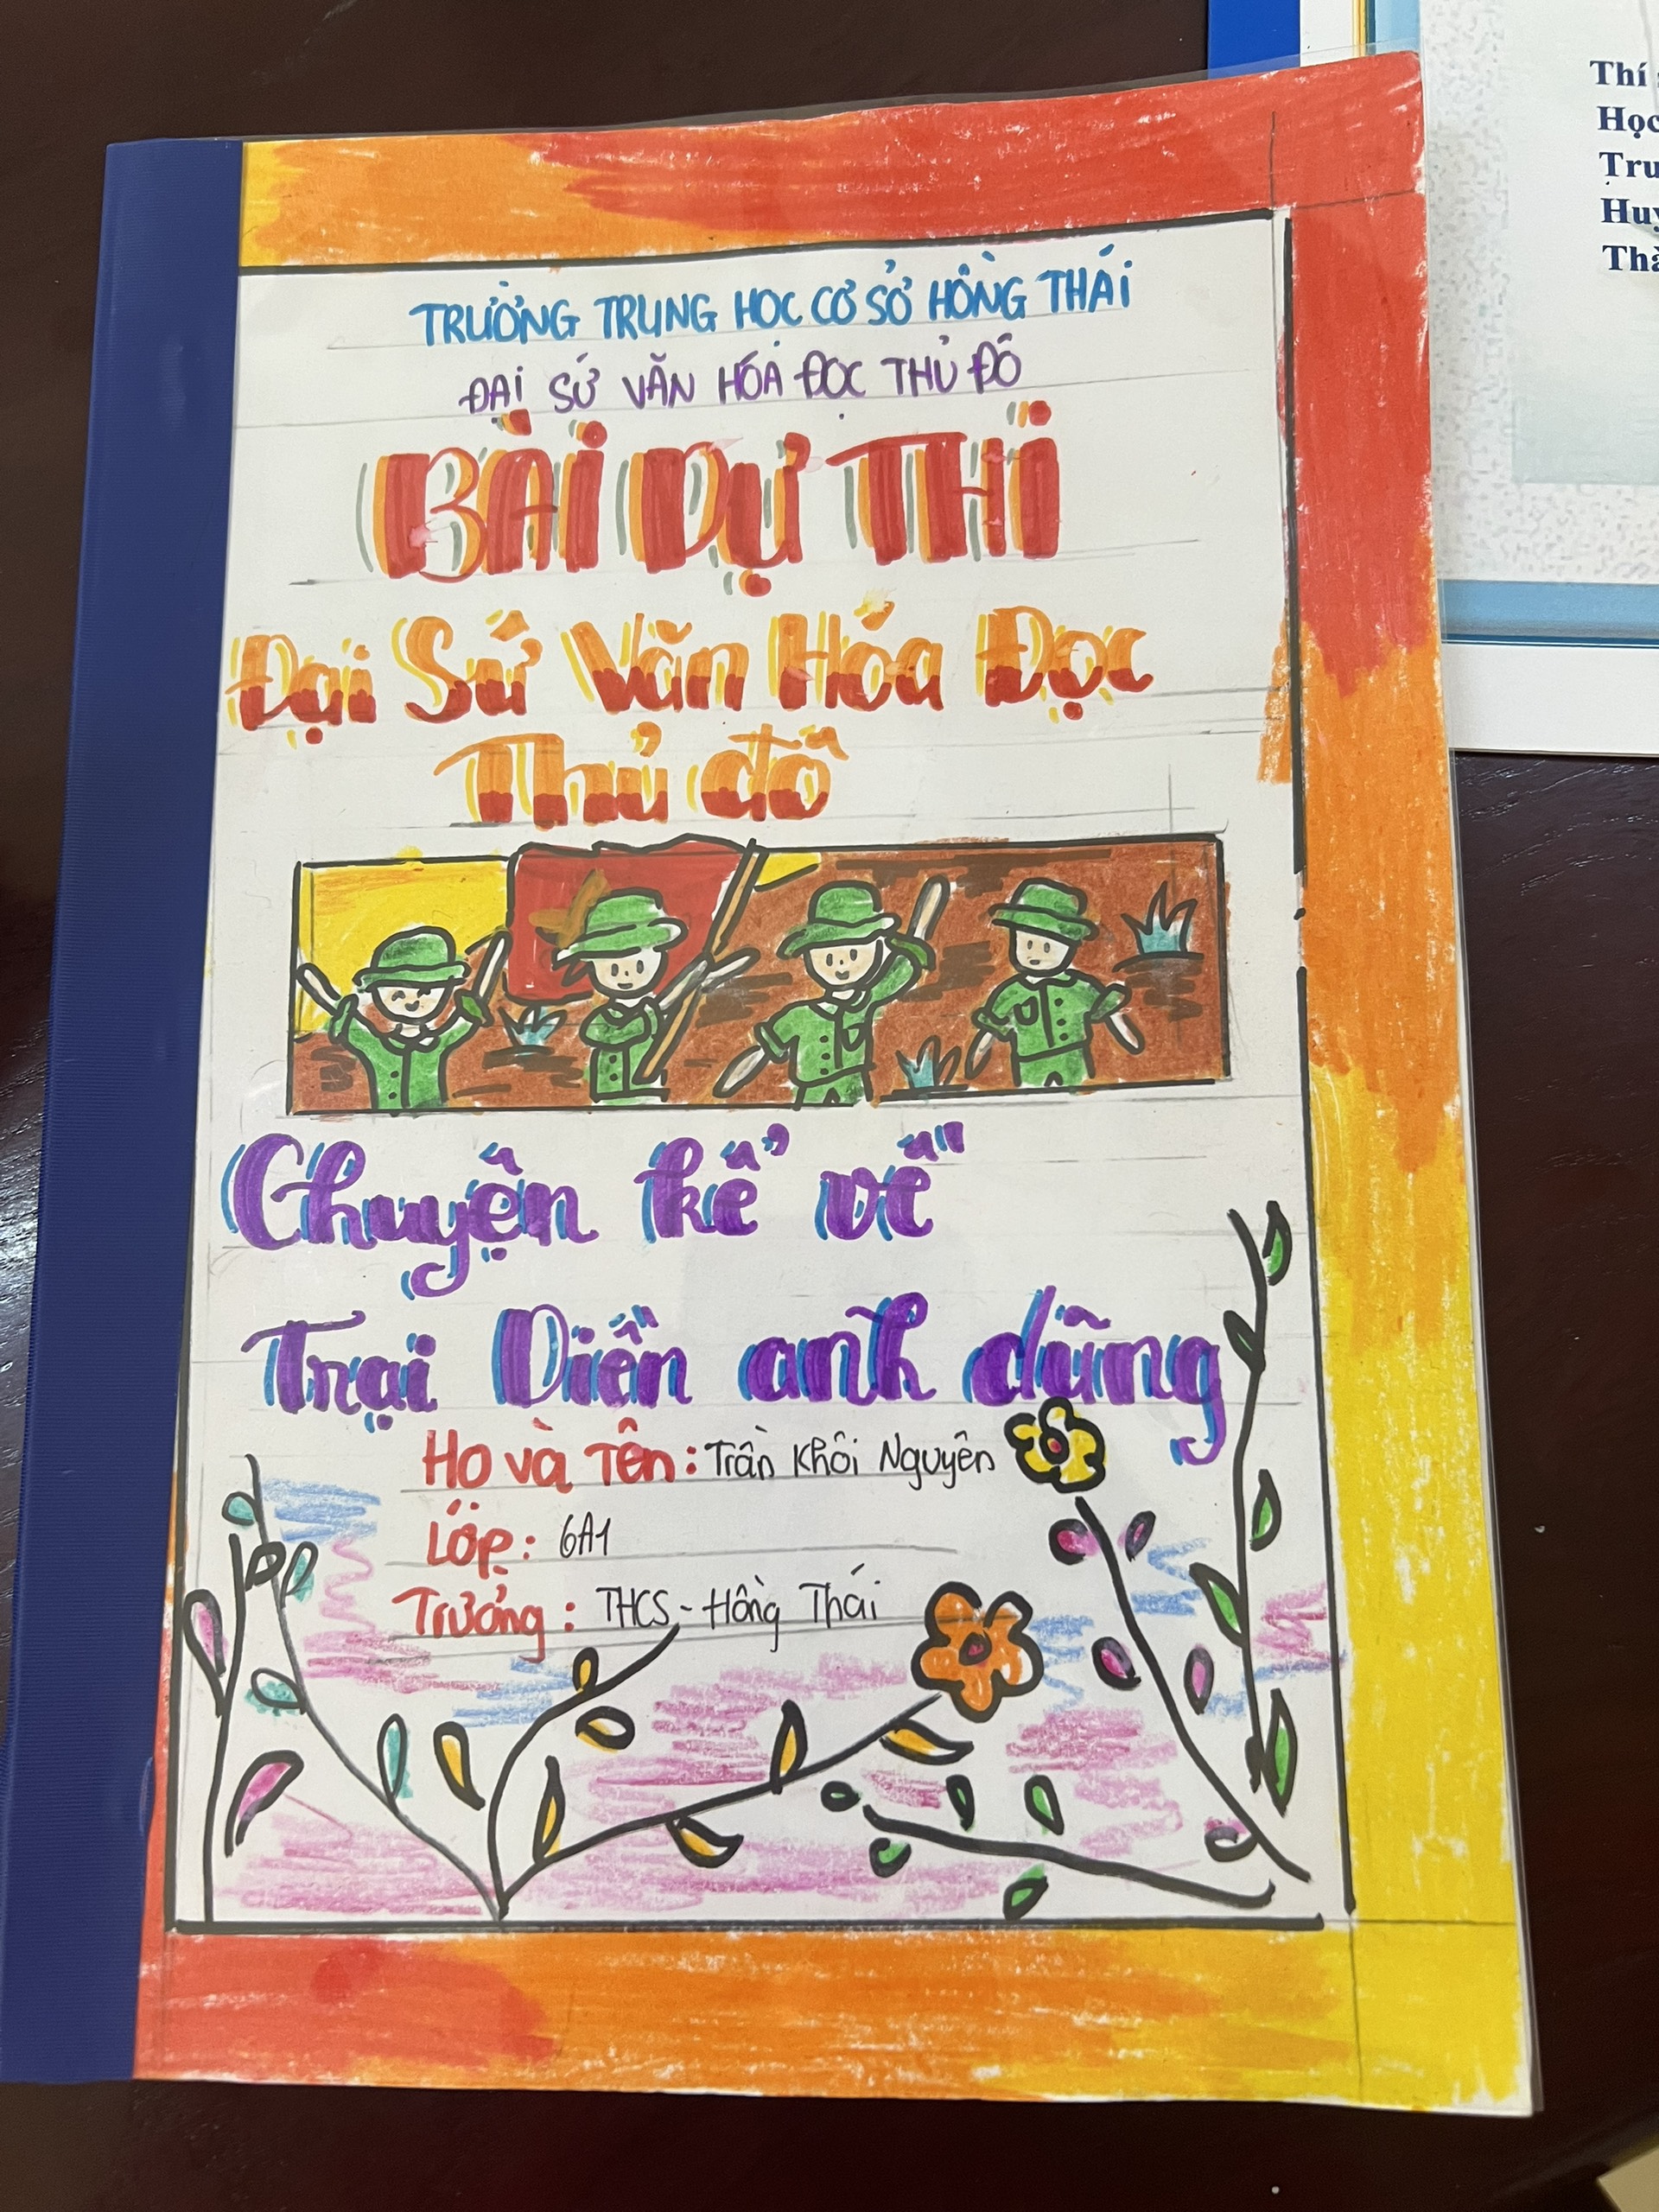 TRƯỜNG TRUNG HỌC CƠ SỞ HỒNG THÁI
ĐẠI SỨ VĂN HÓA ĐỌC THỦ ĐÔ
BÀI DỰ THI
Đại Sứ Văn Hóa Đọc
Thủ đô
Chuyện kể về
Trại Diền anh dũng
Họ và Tên: Trần Khôi Nguyên
Lớp: 6A1
Trường: THCS - Hồng Thái
Thí